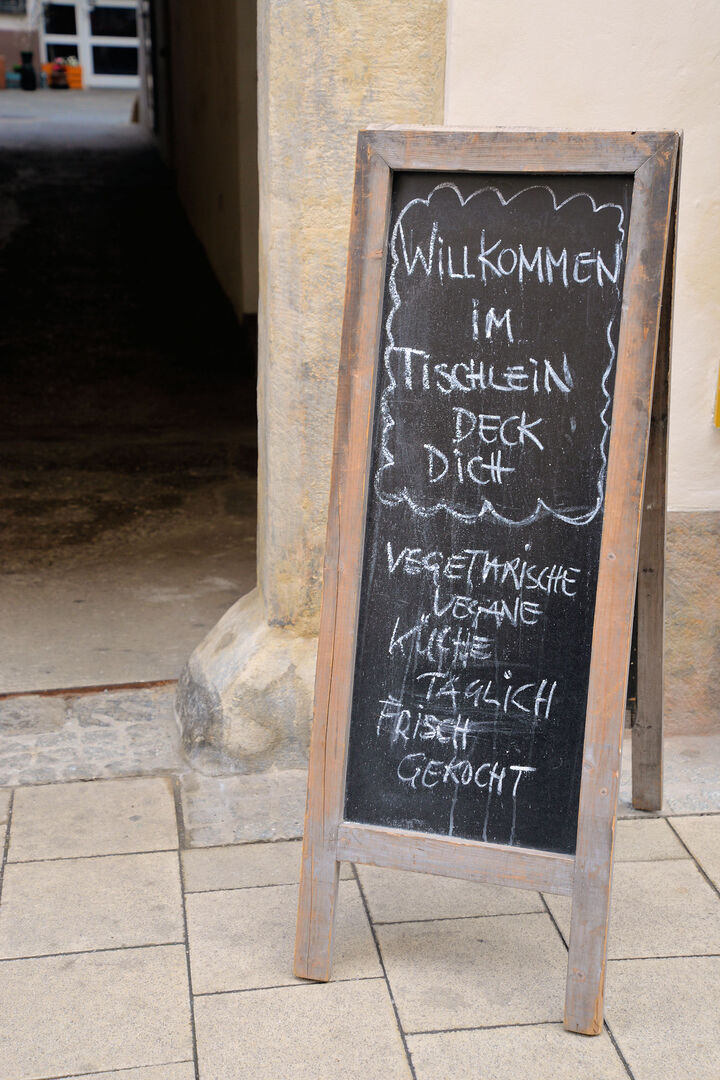 WILLKOMMEN
IM
TISCHLEIN
DECK
DICH
VEGETARISCHE
VEGANE
KÜCHE
TÄGLICH
FRISCH
GEKOCHT